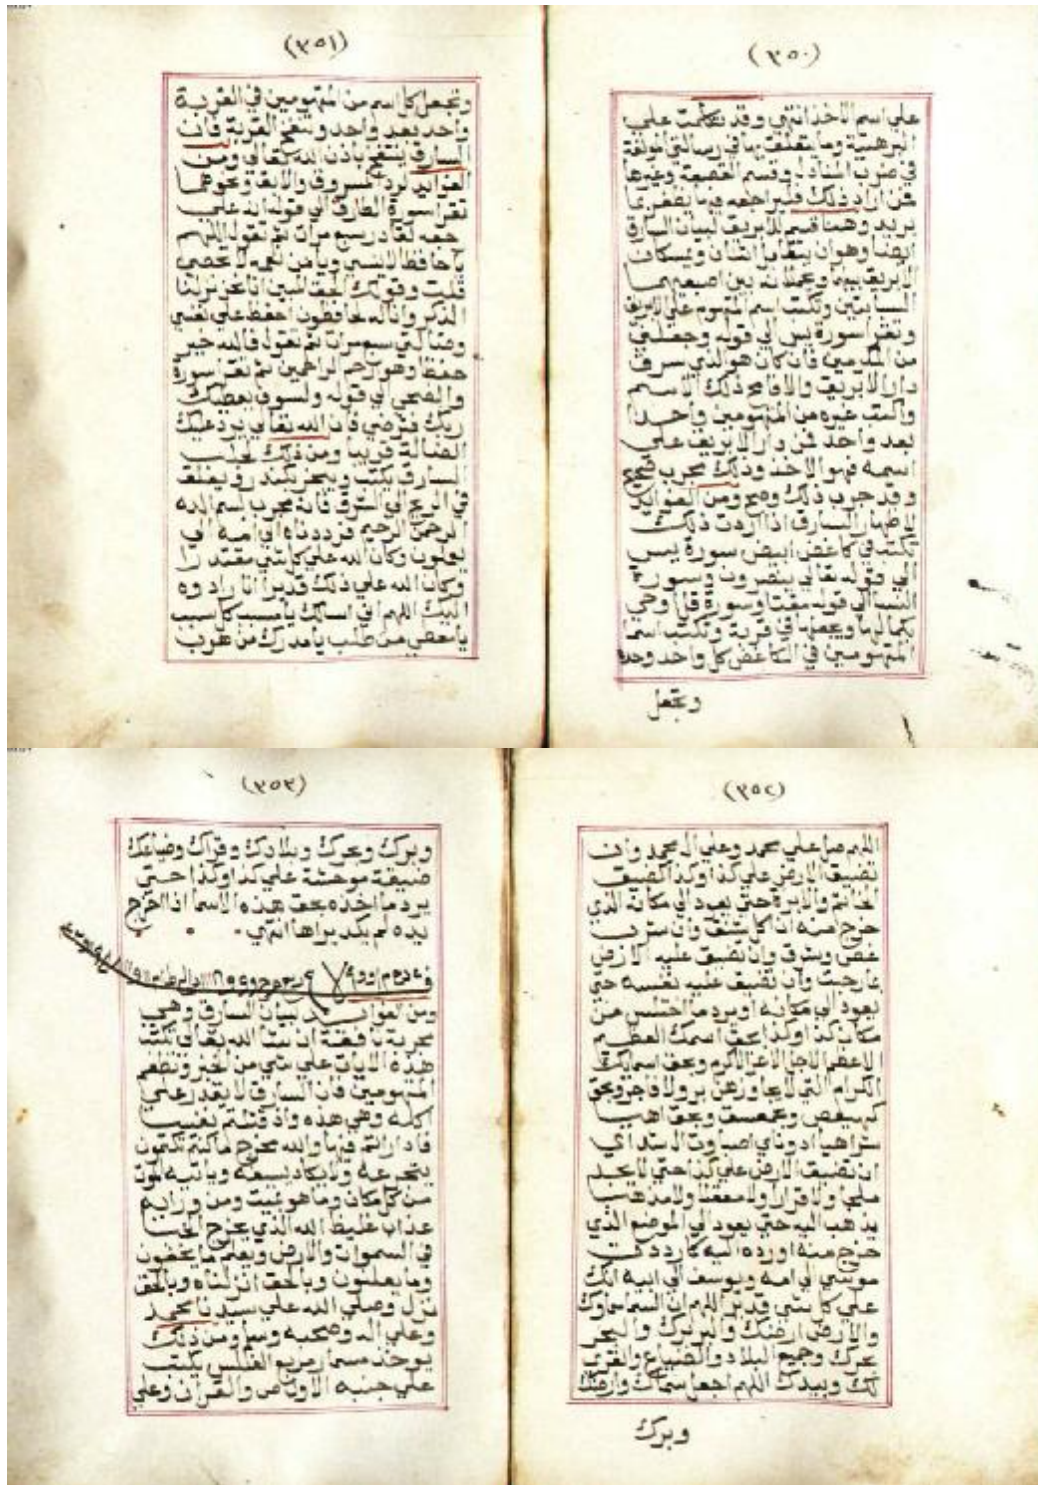 (٣٥٠)
علي اسم الاخذ انتهي وقد تكلمت علي
البرهتية وما يتعلق بها في رسالتي المؤلفة
في ضرب المنادل وقسم القصعة وغيرها
فمن اراد ذلك فليراجعه فيها يظفر بما
يريد وهنا قسم للابريق لبيان السارق
ايضا وهو ان يتقابل اثنان ويمسكان
الابريق بينهما ويحملانه بين اصبعيهما
السبابتين وتكتب اسم المتهوم علي الابريق
وتقرا سورة يس الي قوله وجعلني
من المكرمين فان كان هو الذي سرق
دار الابريق والا فامح ذلك الاسم
واكتب غيره من المتهومين واحدا
بعد واحد فمن دار الابريق علي
اسمه فهو الاخذ وذلك مجرب صحيح
وقد جرب ذلك وصح ومن الفوايد
لاظهار السارق اذا اردت ذلك
تكتب في كاغض ابيض سورة يس
الي قوله تعالي يبصرون وسورة
النسا الي قوله مقيتا وسورة قل اوحي
بكمالها ويجعلها في قربة وتكتب اسما
المتهومين في الكاغض كل واحد وحده
وتجعل
(٣٥١)
وتجعل كل اسم من المتهومين في القربة
واحد بعد واحد وتنفخ القربة فان
السارق ينتفخ باذن الله تعالي ومن
الفوايد لرد المسروق والابق ونحوهما
تقرا سورة الطارق الي قوله انه علي
رجعه لقادر سبع مرات ثم تقول اللهم
يا حافظ لا ينسي ويا من نعمه لا تحصي
قلت وقولك الحق المبين انا نحن نزلنا
الذكر وانا له لحافظون احفظ علي نفسي
وضالتي سبع مرات ثم تقول فالله خير
حفظا وهو ارحم الراحمين ثم تقرا سورة
والضحي الي قوله ولسوف يعطيك
ربك فترضي فان الله تعالي يرد عليك
الضالة قريبا ومن ذلك لجلب
السارق يكتب ويبخر بكندر ويعلق
في الريح في الشرق فانه مجرب بسم الله
الرحمن الرحيم فرددناه الي امه الي
يعلمون وكان الله علي كل شي مقتدرا
وكان الله علي ذلك قديرا انا رادوه
اليك اللهم اني اسالك يا مسبب كل سبب
يا معطي من طلب يا مدرك من هرب
(٣٥٢)
اللهم صل علي محمد وعلي ال محمد وان
تضيق الارض علي كذا وكذا كضيق
الخاتم والابرة حتي يعود الي مكانه الذي
خرج منه ان كل شنق وان سترب
غص وشرق وان تضيق عليه الارض
بما رحبت وان تضيق عليه نفسه حتي
يعود الي مكانه او يرد ما اختلس من
مكان كذا وكذا بحق اسمك العظيم
الاعظم الاجل الاعز الاكرم وبحق اسمايك
الكرام التي لا يجاوزهن بر ولا فاجر وبحق
كهيعص وحمعسق وبحق اهيا
شراهيا ادوناي اصباوت ال شداي
ان تضيق الارض علي كذا حتي لا يجد
ملجا ولا قرارا ولا معقلا ولا مذهب
يذهب اليه حتي يعود الي الموضع الذي
خرج منه او رده اليه كما رددت
موسي الي امه ويوسف الي ابيه انك
علي كل شي قدير اللهم ان السما سماوك
والارض ارضك والبر برك والبحر
بحرك وجميع البلاد والضياع والقري
لك وبيدك اللهم اجعل سماك وارضك
وبرك
(٣٥٣)
وبرك وبحرك وبلادك وقراك وضياعك
ضيقة موحشة علي كذا وكذا حتي
يرد ما اخذه بحق هذه الاسما اذا اخرج
يده لم يكد يراها انتهي
ومن الفوايد لبيان السارق وهي
مجربة نافعة ان شا الله تعالي تكتب
هذه الايات علي شي من الخبز وتطعم
المتهومين فان السارق لا يقدر علي
اكله وهي هذه واذ قتلتم نفسا
فادارأتم فيها والله مخرج ما كنتم تكتمون
يتجرعه ولا يكاد يسيغه وياتيه الموت
من كل مكان وما هو بميت ومن ورائه
عذاب غليظ الله الذي يخرج الخبا
في السموات والارض ويعلم ما يخفون
وما يعلنون وبالحق انزلناه وبالحق
نزل وصلي الله علي سيدنا محمد
وعلي اله وصحبه وسلم ومن ذلك
يوخذ مسمار مربع الفلس يكتب
علي جنبه الاول ص والقران وعلي